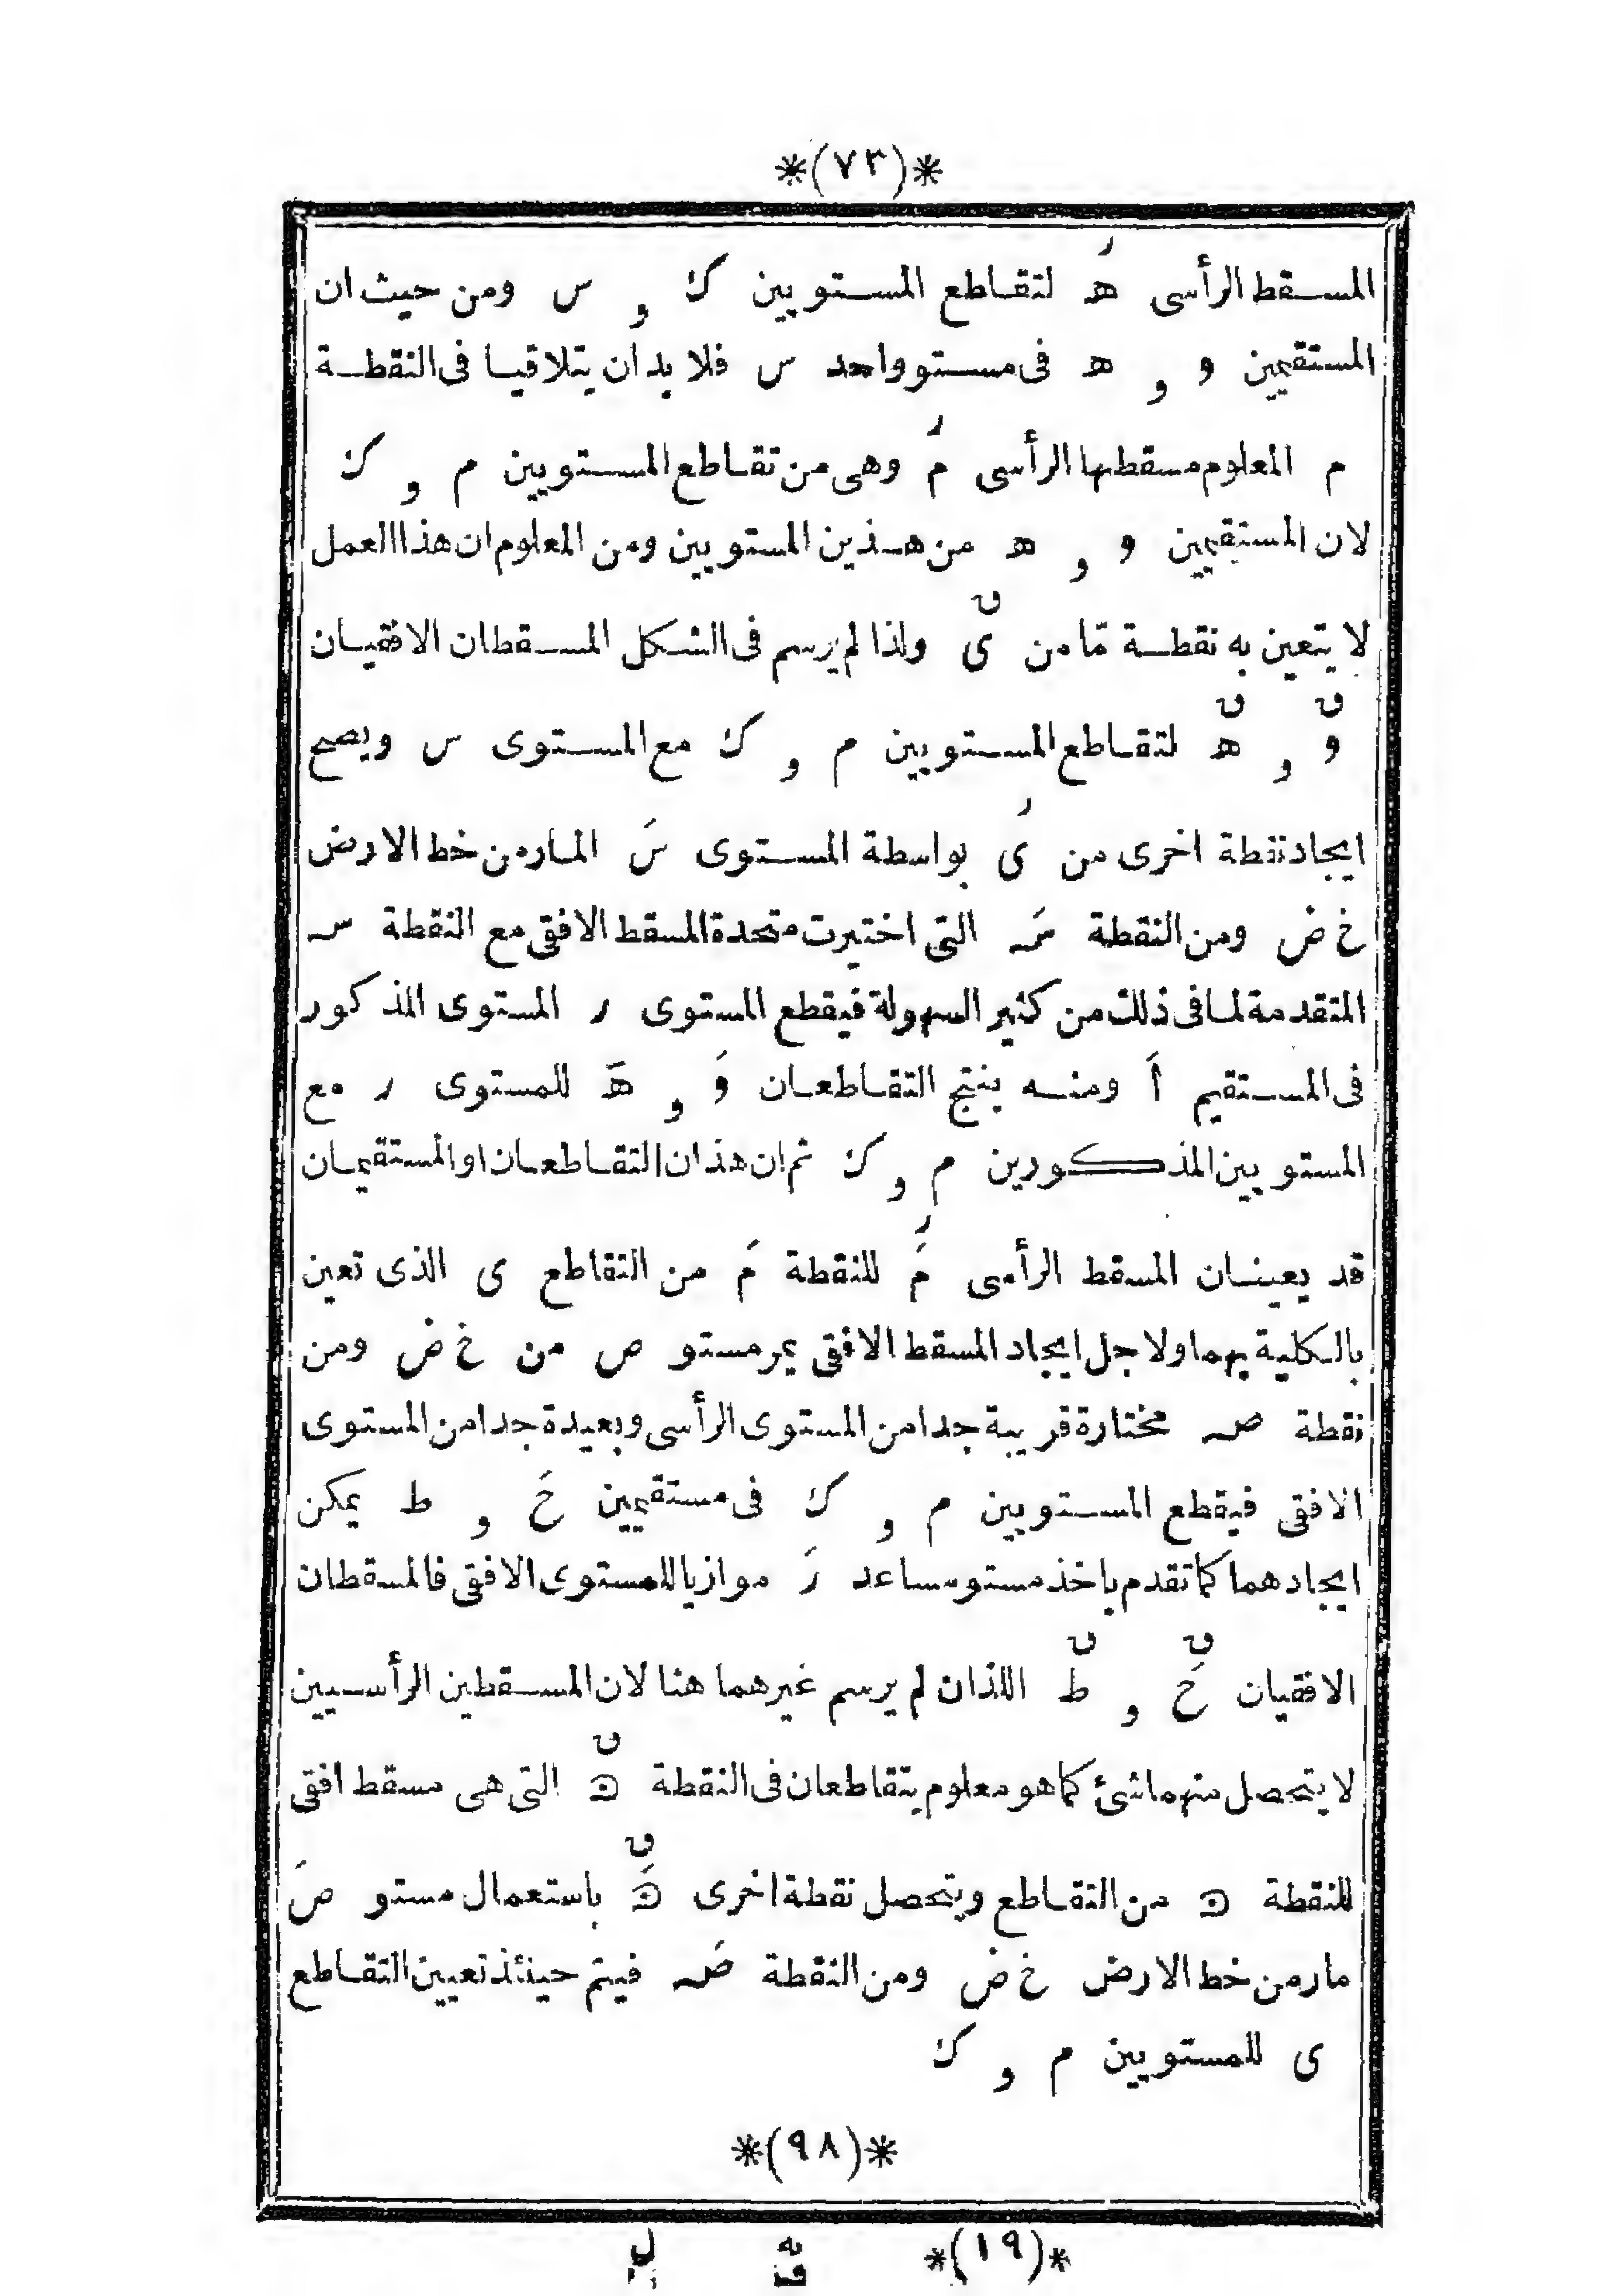 *(٧٣)*
المسقط الرأسى هَر لتقاطع المستويين ك و س ومن حيث ان
المستقيمين و و ه فى مستو واحد س فلا بد ان يتلاقيا فى النقطة
م المعلوم مسقطها الرأسى مَر وهى من تقاطع المستويين م و ك
لان المستقيمين و و ه من هذين المستويين ومن المعلوم ان هذا العمل
لا يتعين به نقطة ما من ىں ولذا لم يرسم فى الشكل المسقطان الافقيان
وں و هں لتقاطع المستويين م و ك مع المستوى س ويصح
ايجاد نقطة اخرى من ىَر بواسطة المستوى سَ المار من خط الارض
خ ض ومن النقطة سَہ التى اختيرت متحدة المسقط الافقى مع النقطة سہ
المتقدمة لما فى ذلك من كثير السهولة فيقطع المستوى ر المستوى المذكور
فى المستقيم أَ ومنه ينتج التقاطعان وَ و هَ للمستوى ر مع
المستويين المذكورين م و ك ثم ان هذان التقاطعان او المستقيمان
قد يعينان المسقط الرأسى مَر للنقطة مَ من التقاطع ى الذى تعين
بالكلية بهما ولاجل ايجاد المسقط الافقى يمر مستو ص من خ ض ومن
نقطة صہ مختارة قريبة جدا من المستوى الرأسى وبعيدة جدا من المستوى
الافقى فيقطع المستويين م و ك فى مستقيمين حَ و ط يمكن
ايجادهما كما تقدم باخذ مستو مساعد رَ موازيا للمستوى الافقى فالمسقطان
الافقيان حَں و طں اللذان لم يرسم غيرهما هنا لان المسقطين الرأسيين
لا يتحصل منهما شئ كما هو معلوم يتقاطعان فى النقطة ںں التى هى مسقط افقى
للنقطة ں من التقاطع ويتحصل نقطة اخرى ںَں باستعمال مستو صَ
مار من خط الارض خ ض ومن النقطة صَہ فيتم حينئذ تعيين التقاطع
ى للمستويين م و ك
*(٩٨)*
*(١٩)*